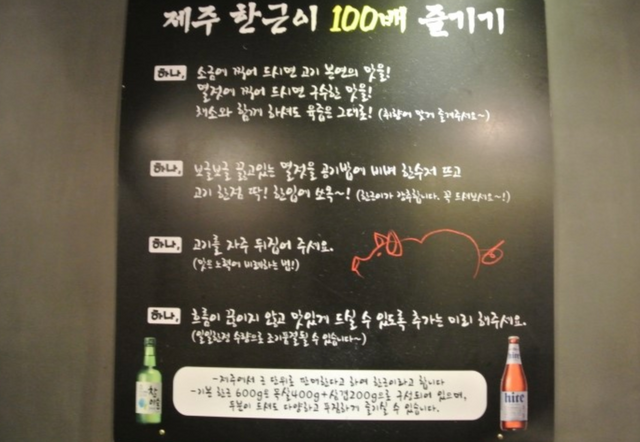 제주 한근이 100배 즐기기
하나, 소금에 찍어 드시면 고기 본연의 맛을!
멜젓에 찍어 드시면 구수한 맛을!
채소와 함께 하셔도 육즙은 그대로! (취향에 맞게 즐겨주세요~)
하나, 보글보글 끓고있는 멜젓을 공기밥에 비벼 한수저 뜨고
고기 한점 딱! 한입에 쏘옥~! (한근이가 강추합니다. 꼭 드셔보셔요~!)
하나, 고기를 자주 뒤집어 주세요.
(맛은 노력에 비례하는 법!)
하나, 흐름이 끊이지 않고 맛있게 드실 수 있도록 추가는 미리 해주세요.
(일일한정 수량으로 조기품절될 수 있습니다~)
-제주에서 근 단위로 판매한다고 하여 한근이라고 합니다
-기본 한근 600g은 목살400g+삼겹200g으로 구성되어 있으며,
두분이 드셔도 다양하고 푸짐하게 즐기실 수 있습니다.
참이슬
hite